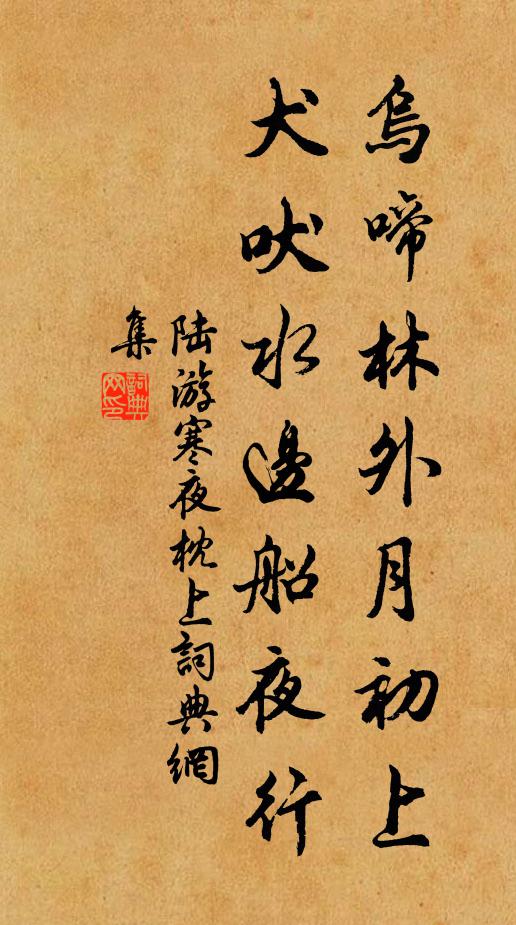 烏啼林外月初上
犬吠水邊船夜行
陆游寒夜枕上詞典網
集
詞典
网印